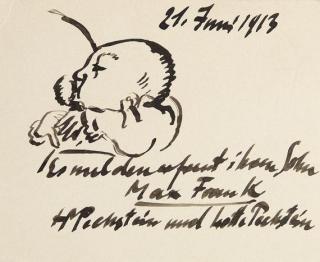 21. Juni 1913
Es melden erfreut ihren Sohn
Max Frank
HPechstein und Lotte Pechstein